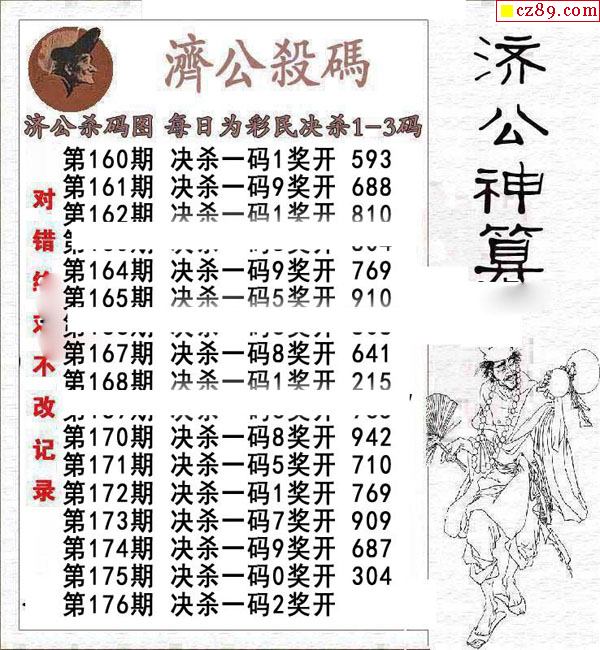 cz89.com
濟公殺碼
济公杀码图 每日为彩民决杀1-3码
第160期 决杀一码1奖开 593
第161期 决杀一码9奖开 688
第162期 决杀一码1奖开 810
第164期 决杀一码9奖开 769
第165期 决杀一码5奖开 910
第167期 决杀一码8奖开 641
第168期 决杀一码1奖开 215
第170期 决杀一码8奖开 942
第171期 决杀一码5奖开 710
第172期 决杀一码1奖开 769
第173期 决杀一码7奖开 909
第174期 决杀一码9奖开 687
第175期 决杀一码0奖开 304
第176期 决杀一码2奖开
对错
不改记录
济公神算